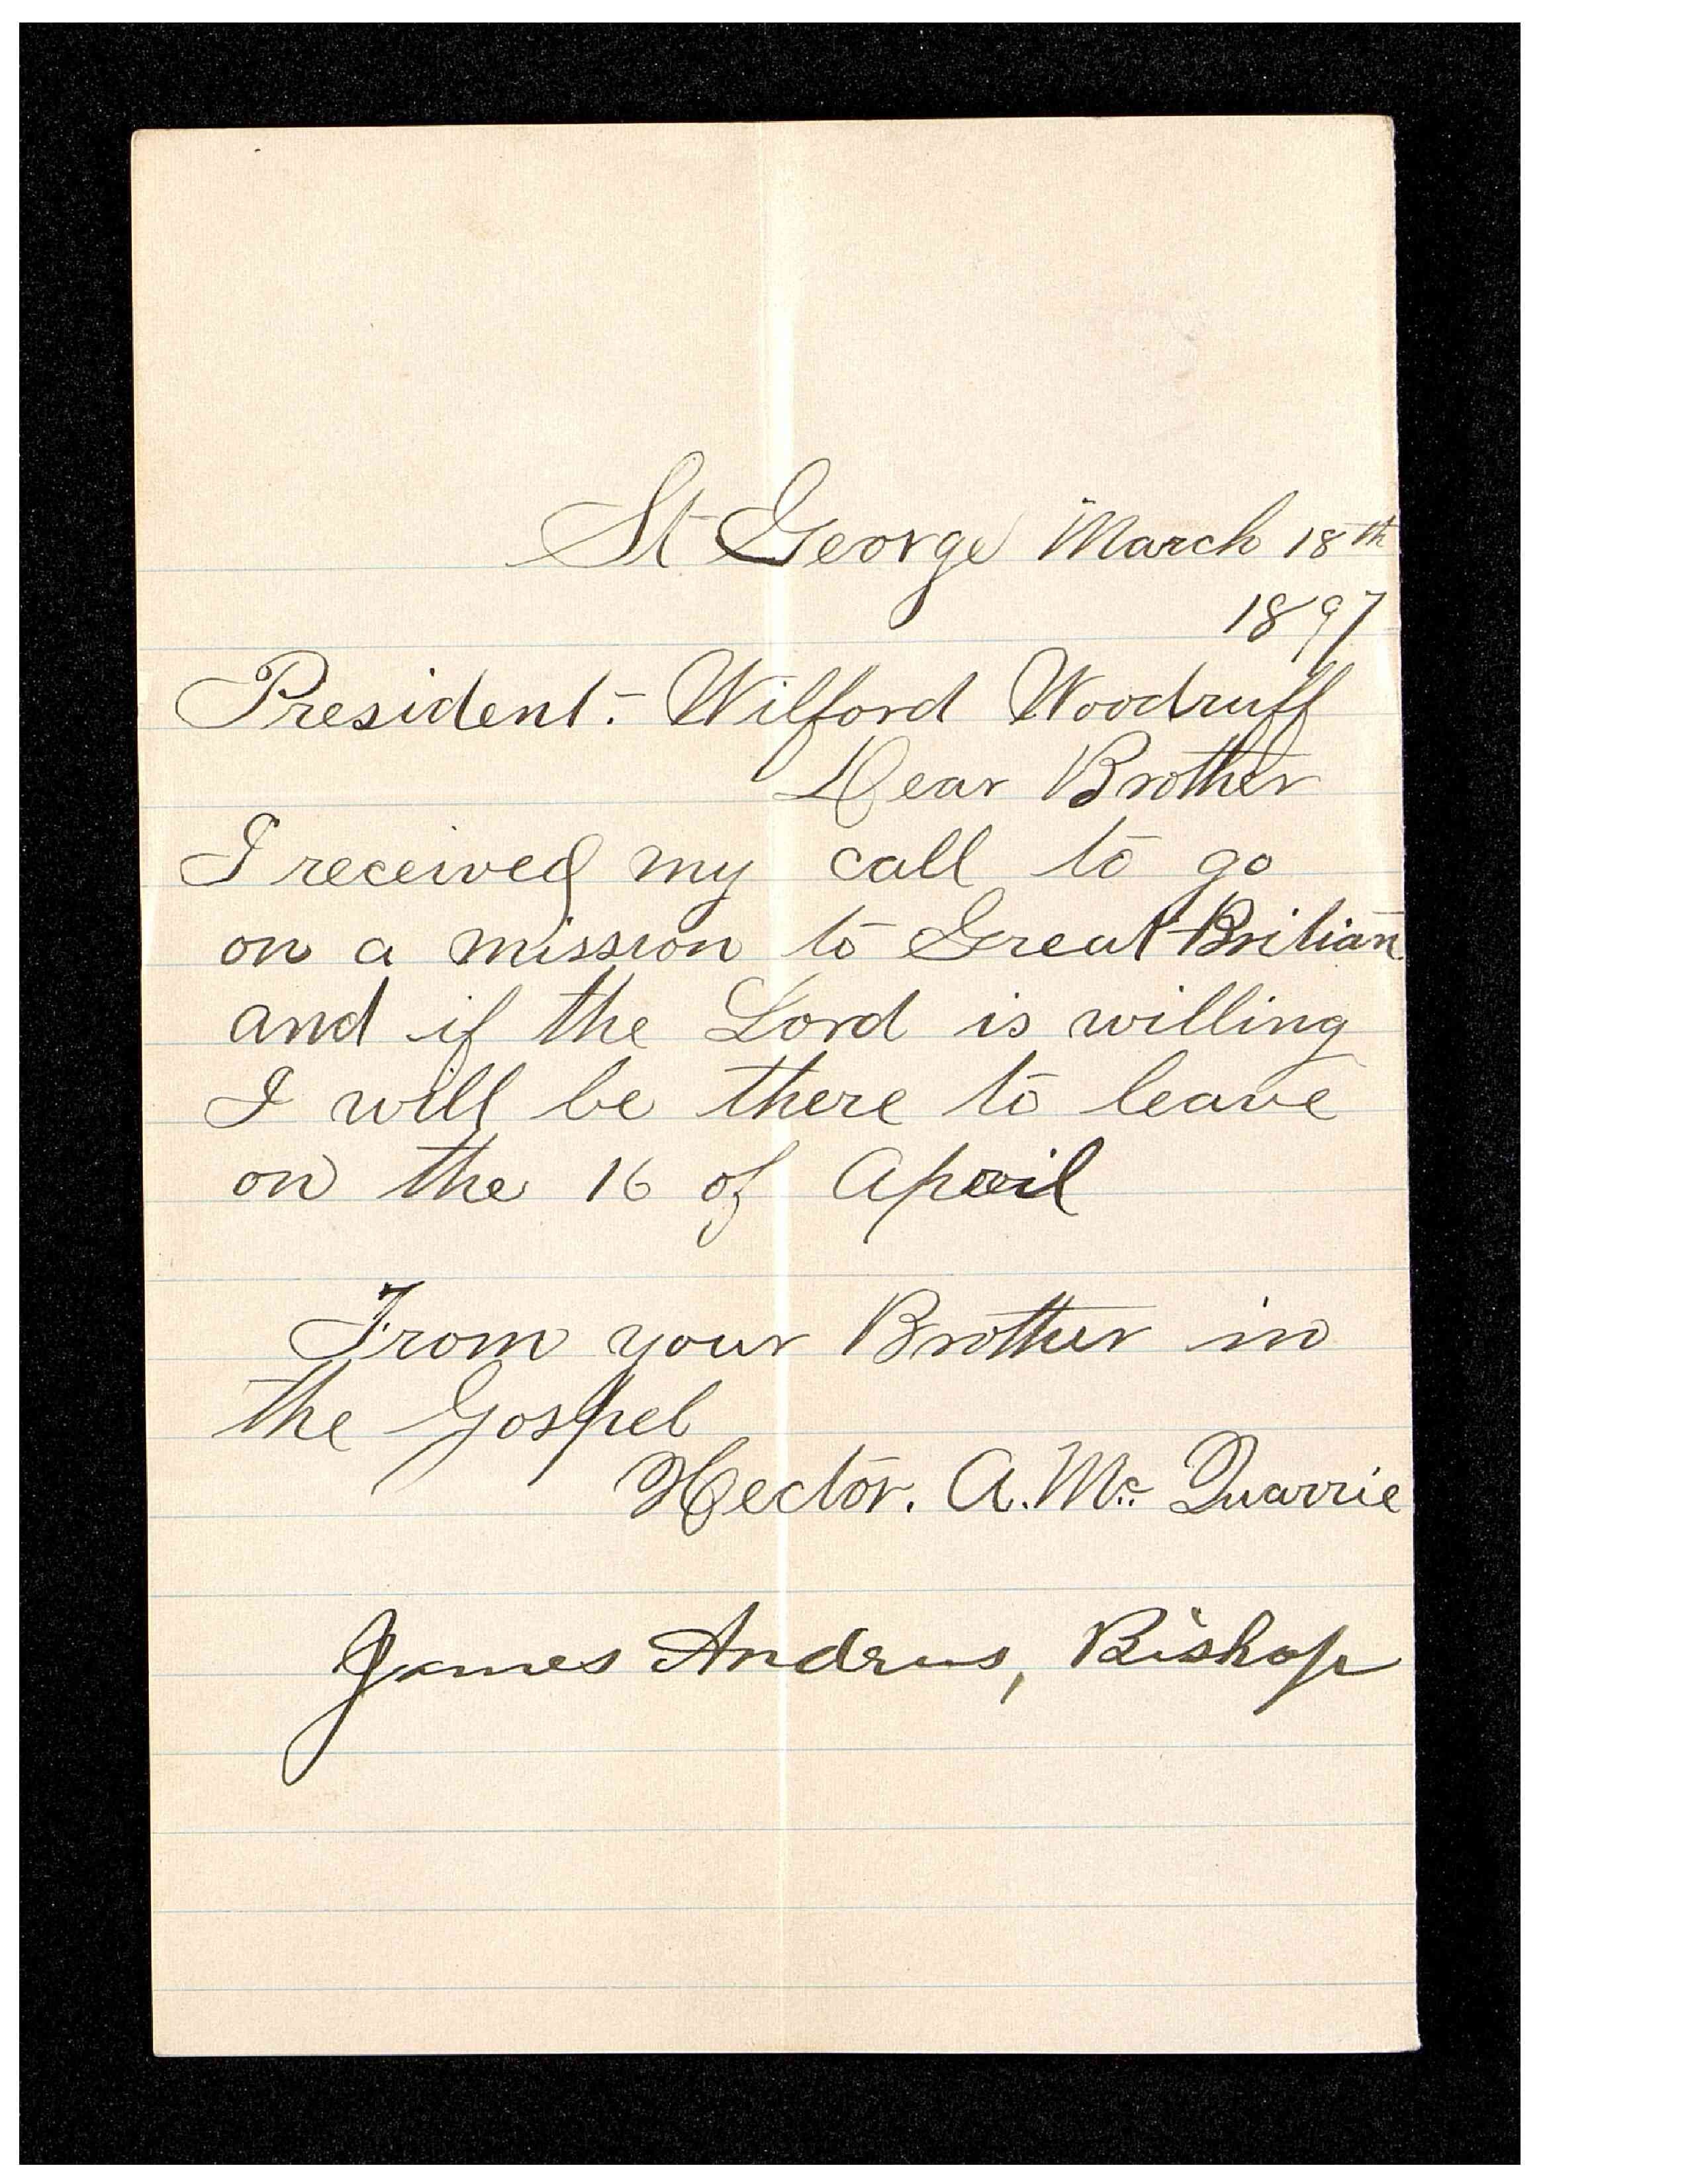 St George March 18th
1897
President:- Wilford Woodruff
Dear Brother
I received my call to go
on a mission to Great Britian
and if the Lord is willing
I will be there to leave
on the 16 of April
From your Brother in
the Gospel
Hector. A. Mc. Quarrie
James Andrus, Bishop